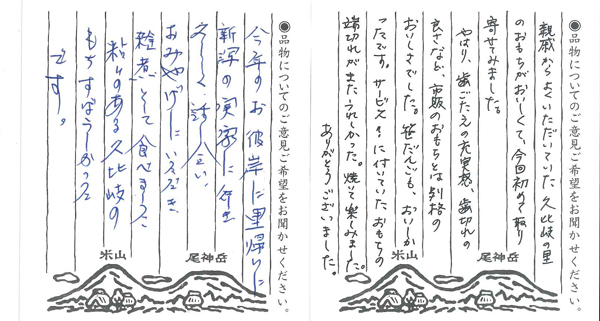 ●品物についてのご意見ご希望をお聞かせください。
親戚からよくいただいていた久比岐の里
のおもちがおいしくて、今回初めて取り
寄せてみました。
やはり、歯ごたえの充実感、歯切れの
良さなど、市販のおもちとは別格の
おいしさでした。笹だんごも、おいしか
ったです。サービス?に付いていたおもちの
端切れがまたうれしかった。焼いて楽しみました。
ありがとうございました。
尾神岳
米山
●品物についてのご意見ご希望をお聞かせください。
今年のお彼岸に里帰りし
新潟の実家に行き
久しく話し合い、
おみやげにいただき
雑煮にして食べました
粘りのある久比岐の
もちすばらしかった
です。
尾神岳
米山